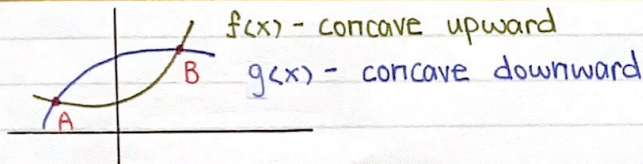 f(x) - concave upward
B
g(x) - concave downward
A